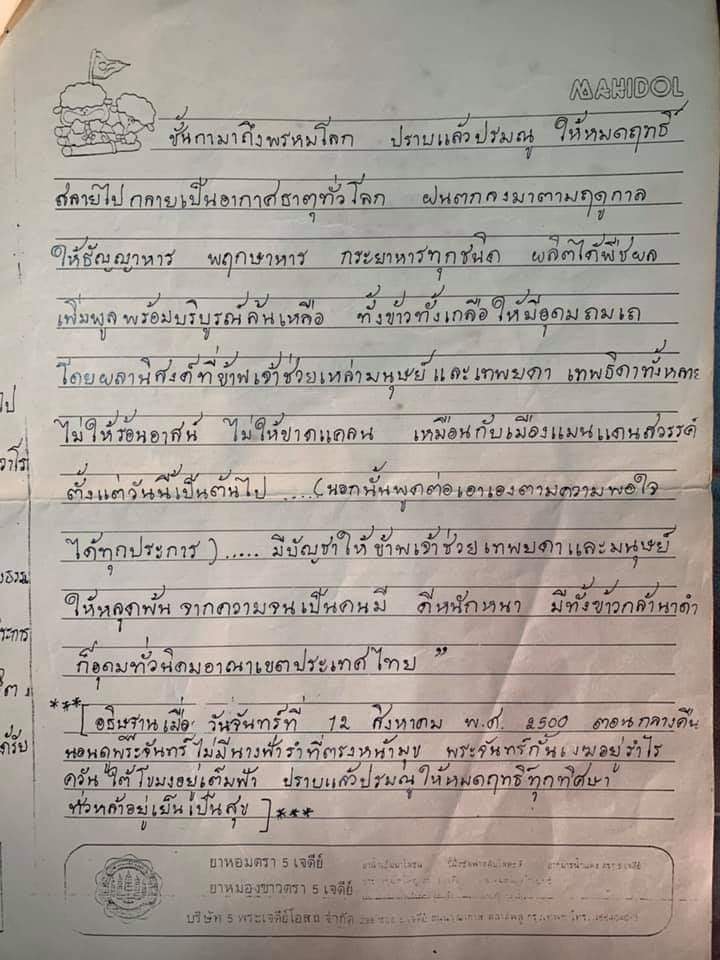 MAHIDOL
ชั้นกามาถึงพรหมโลก ปราบแล้วปรมณู ให้หมดฤทธิ์
สลายไป กลายเป็นอากาศธาตุทั่วโลก ฝนตกลงมาตามฤดูกาล
ให้ธัญญาหาร พฤกษาหาร กระยาหารทุกชนิด ผลิตได้พืชผล
เพิ่มพูลพร้อมบริบูรณ์ล้นเหลือ ทั้งข้าวทั้งเกลือให้มีอุดมถมเถ
โดยผลานิสงค์ที่ข้าพเจ้าช่วยเหล่ามนุษย์และเทพยดา เทพธิดาทั้งหลาย
ไม่ให้ร้อนอาสน์ ไม่ให้ขาดแคลน เหมือนกับเมืองแมนแดนสวรรค์
ตั้งแต่วันนี้เป็นต้นไป .....(นอกนั้นพูดต่อเอาเองตามความพอใจ
ได้ทุกประการ)..... มีบัญชาให้ข้าพเจ้าช่วยเทพยดาและมนุษย์
ให้หลุดพ้น จากความจนเป็นคนมี ดีหนักหนา มีทั้งข้าวกล้านาดำ
ก็อุดมทั่วนิคมอาณาเขตประเทศไทย”
***[อธิษฐานเมื่อ วันจันทร์ที่ 12 สิงหาคม พ.ศ. 2500 ตอนกลางคืน
นอนดูพระจันทร์ไม่มีนางฟ้ารำที่ตรงหน้ามุข พระจันทร์กั้นเงาอยู่รำไร
ควันใต้โขมงอยู่เต็มฟ้า ปราบแล้วปรมณูให้หมดฤทธิ์ทุกทิศษา
ทั่วหล้าอยู่เย็นเป็นสุข]***
ยาหอมตรา 5 เจดีย์
ยาหม่องขาวตรา 5 เจดีย์
บริษัท 5 พระเจดีย์โอสถ จำกัด
ไป